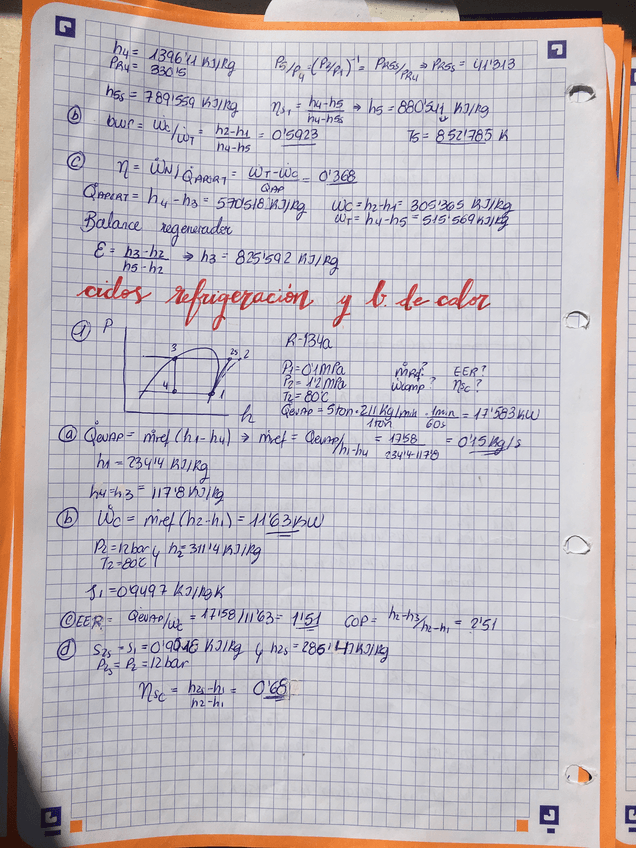 h4 = 1396'11 KJ/Kg
PR4 = 330'5
P5/P4 = (P2/P1)^-1 = PR5s/PR4 ⇒ PR5s = 41'313
h5s = 789'559 KJ/Kg
ηST = h4-h5/h4-h5s → h5 = 880'541 KJ/Kg
T5 = 852'785 K
b) bwr = Ẇc/ẆT = h2-h1/h4-h5 = 0'5923
c) η = ẆN/Q̇APORT = ẆT-Ẇc/QAP = 0'368
Q̇APORT = h4 - h3 = 570'518 KJ/Kg
Wc = h2-h1 = 305'365 KJ/Kg
WT = h4-h5 = 515'569 KJ/Kg
Balance regenerador
ε = h3-h2/h5-h2 ⇒ h3 = 825'592 KJ/Kg
ciclos refrigeración y b. de calor
1) P
3 2s 2
4 1
h
R-134a
P1 = 0'1 MPa
P2 = 1'2 MPa
T2 = 80°C
ṁRef? EER?
Ẇcomp? ηsc?
Q̇evAP = 5 ton · 211 Kj/min/1 ton · 1min/60s = 17'583 KW
a) Q̇evAP = ṁref (h1-h4) → ṁref = Q̇evAP/h1-h4 = 17'58/234'4-117'8 = 0'15 Kg/s
h1 = 234'4 KJ/Kg
h4=h3 = 117'8 KJ/Kg
b) Ẇc = ṁref (h2-h1) = 11'63 KW
P2 = 12 bar
T2 = 80°C } h2 = 311'4 KJ/Kg
s1 = 0'9497 KJ/KgK
c) EER = Q̇evAP/Ẇc = 17'58/11'63 = 1'51 COP = h2-h3/h2-h1 = 2'51
d) S2s = S1 = KJ/Kg } h2s = KJ/Kg
P2s = P2 = 12 bar
ηsc = h2s-h1/h2-h1 = 0'68